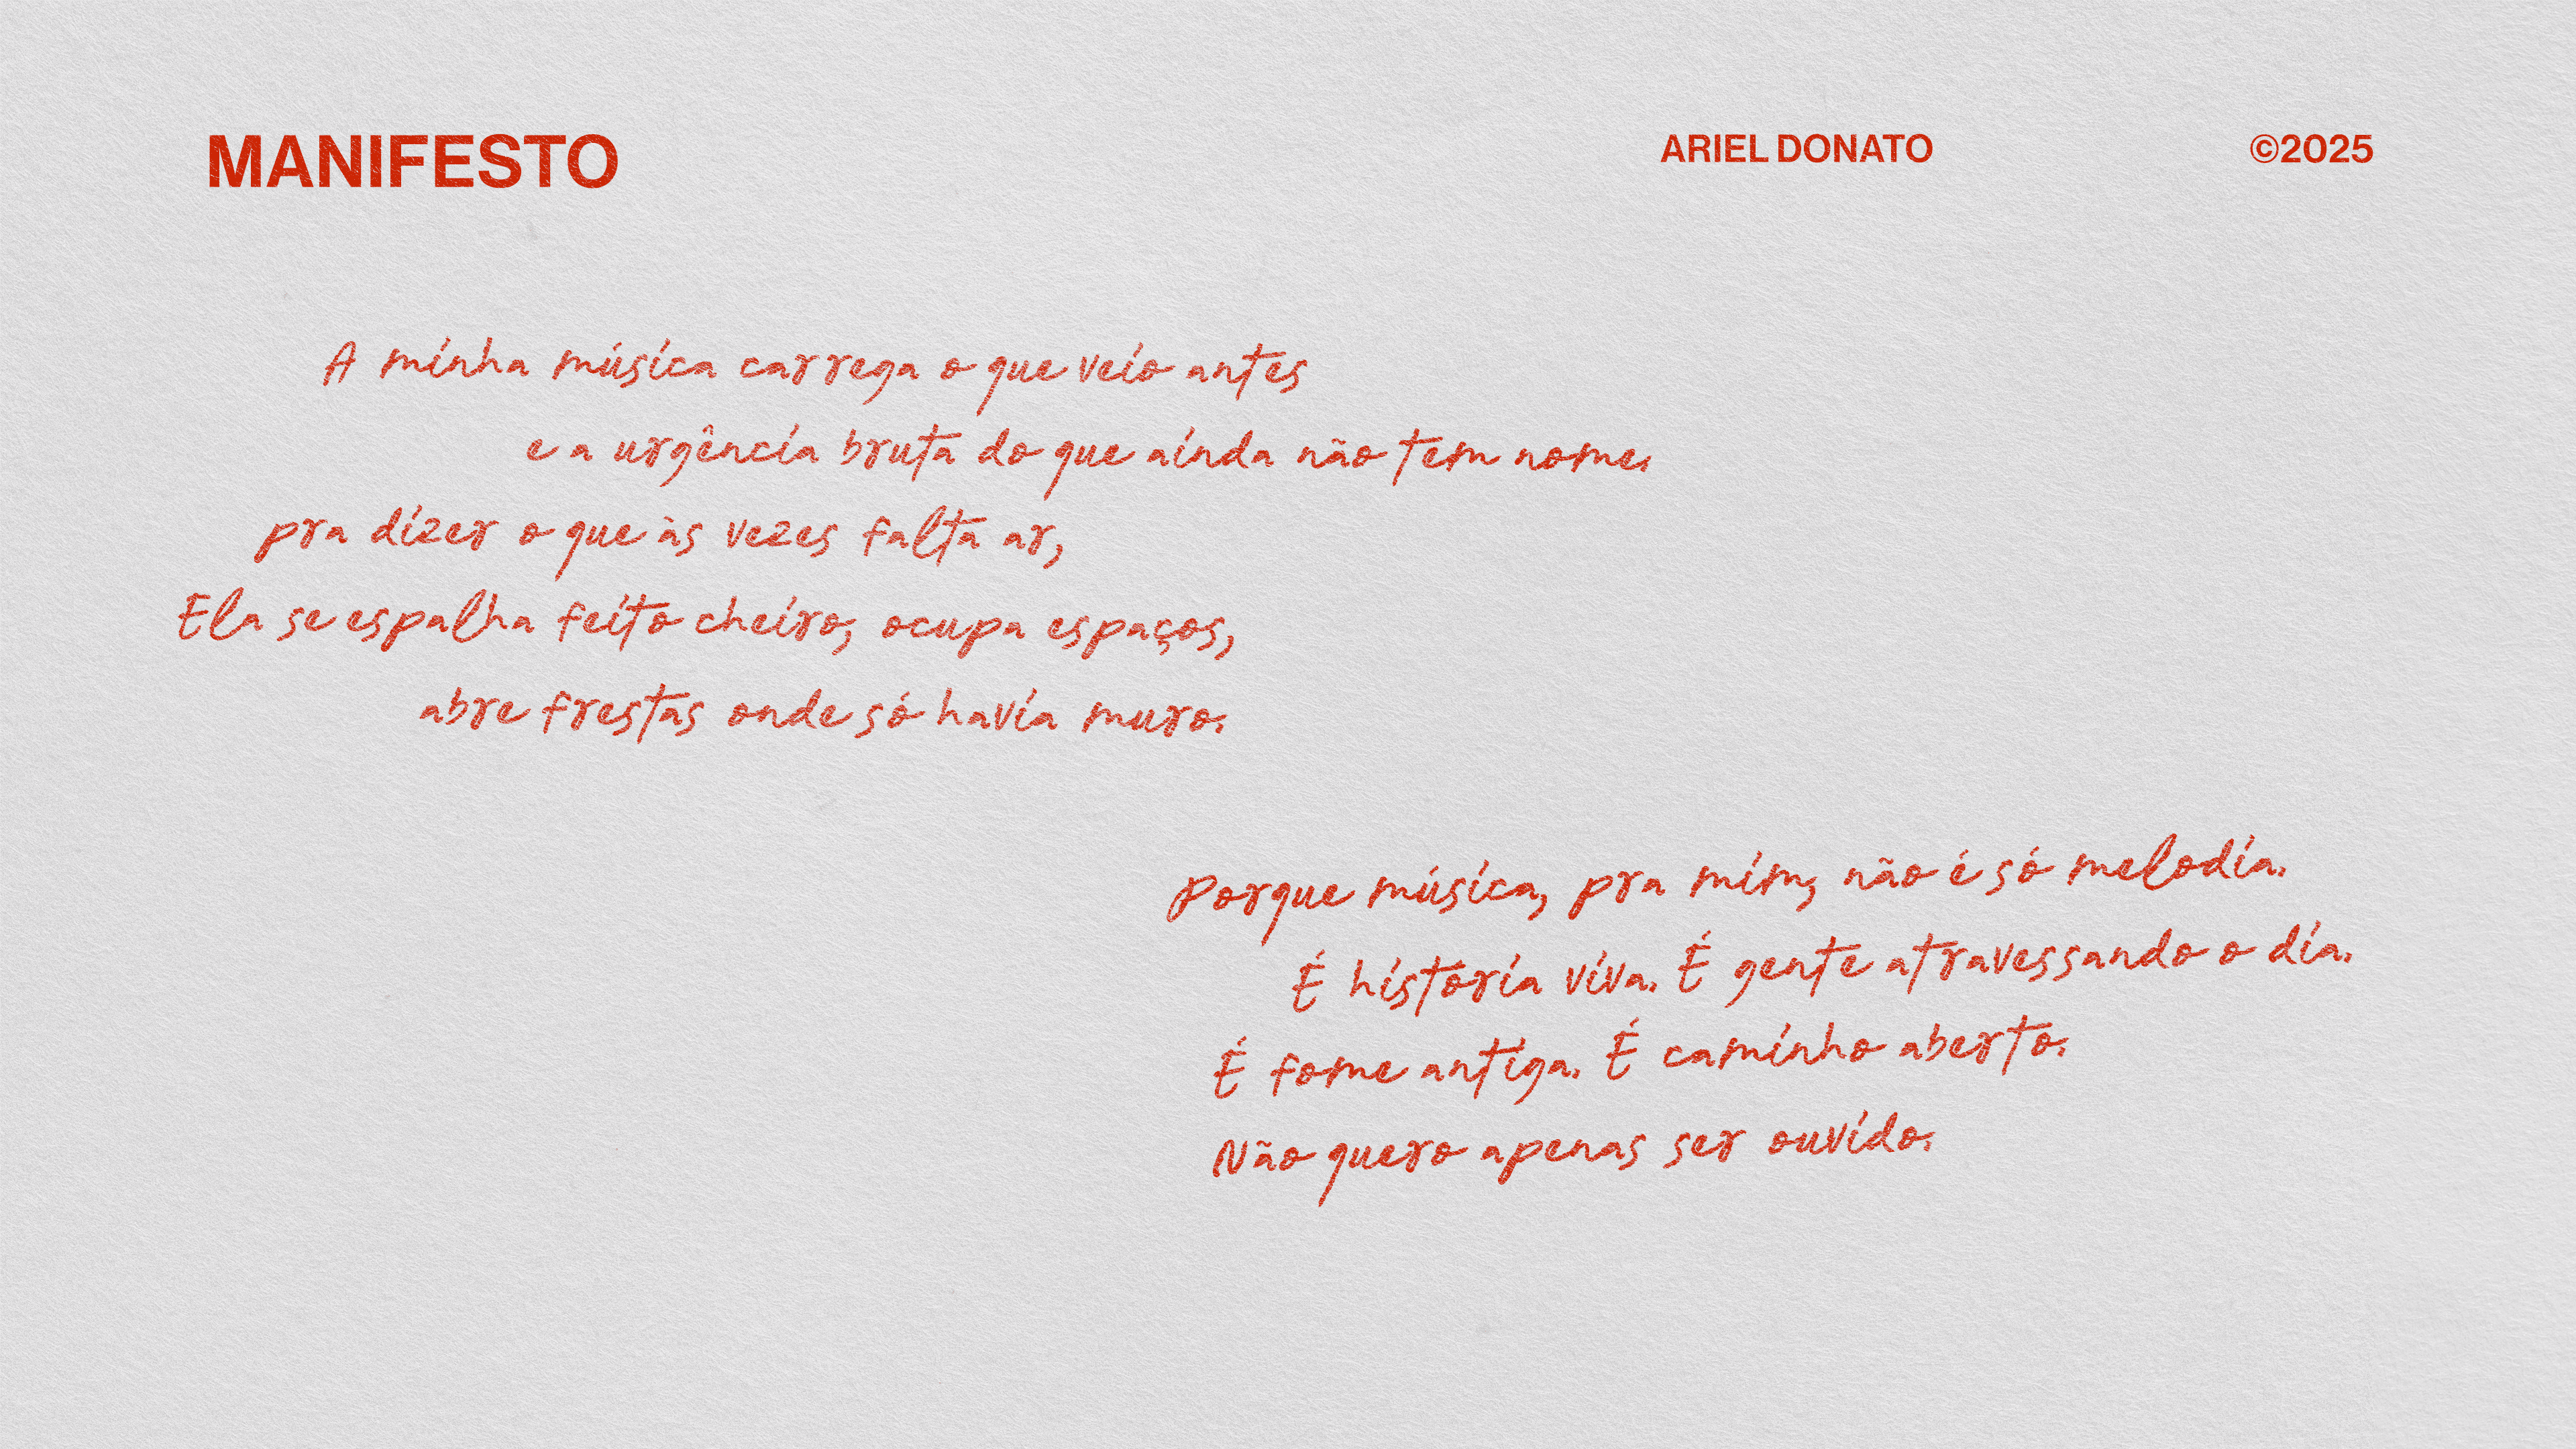 MANIFESTO
ARIEL DONATO
©2025
A minha música carrega o que veio antes
e a urgência bruta do que ainda não tem nome.
pra dizer o que às vezes falta ar,
Ela se espalha feito cheiro, ocupa espaços,
abre frestas onde só havia muro.
Porque música, pra mim, não é só melodia.
É história viva. É gente atravessando o dia.
É fome antiga. É caminho aberto.
Não quero apenas ser ouvido.